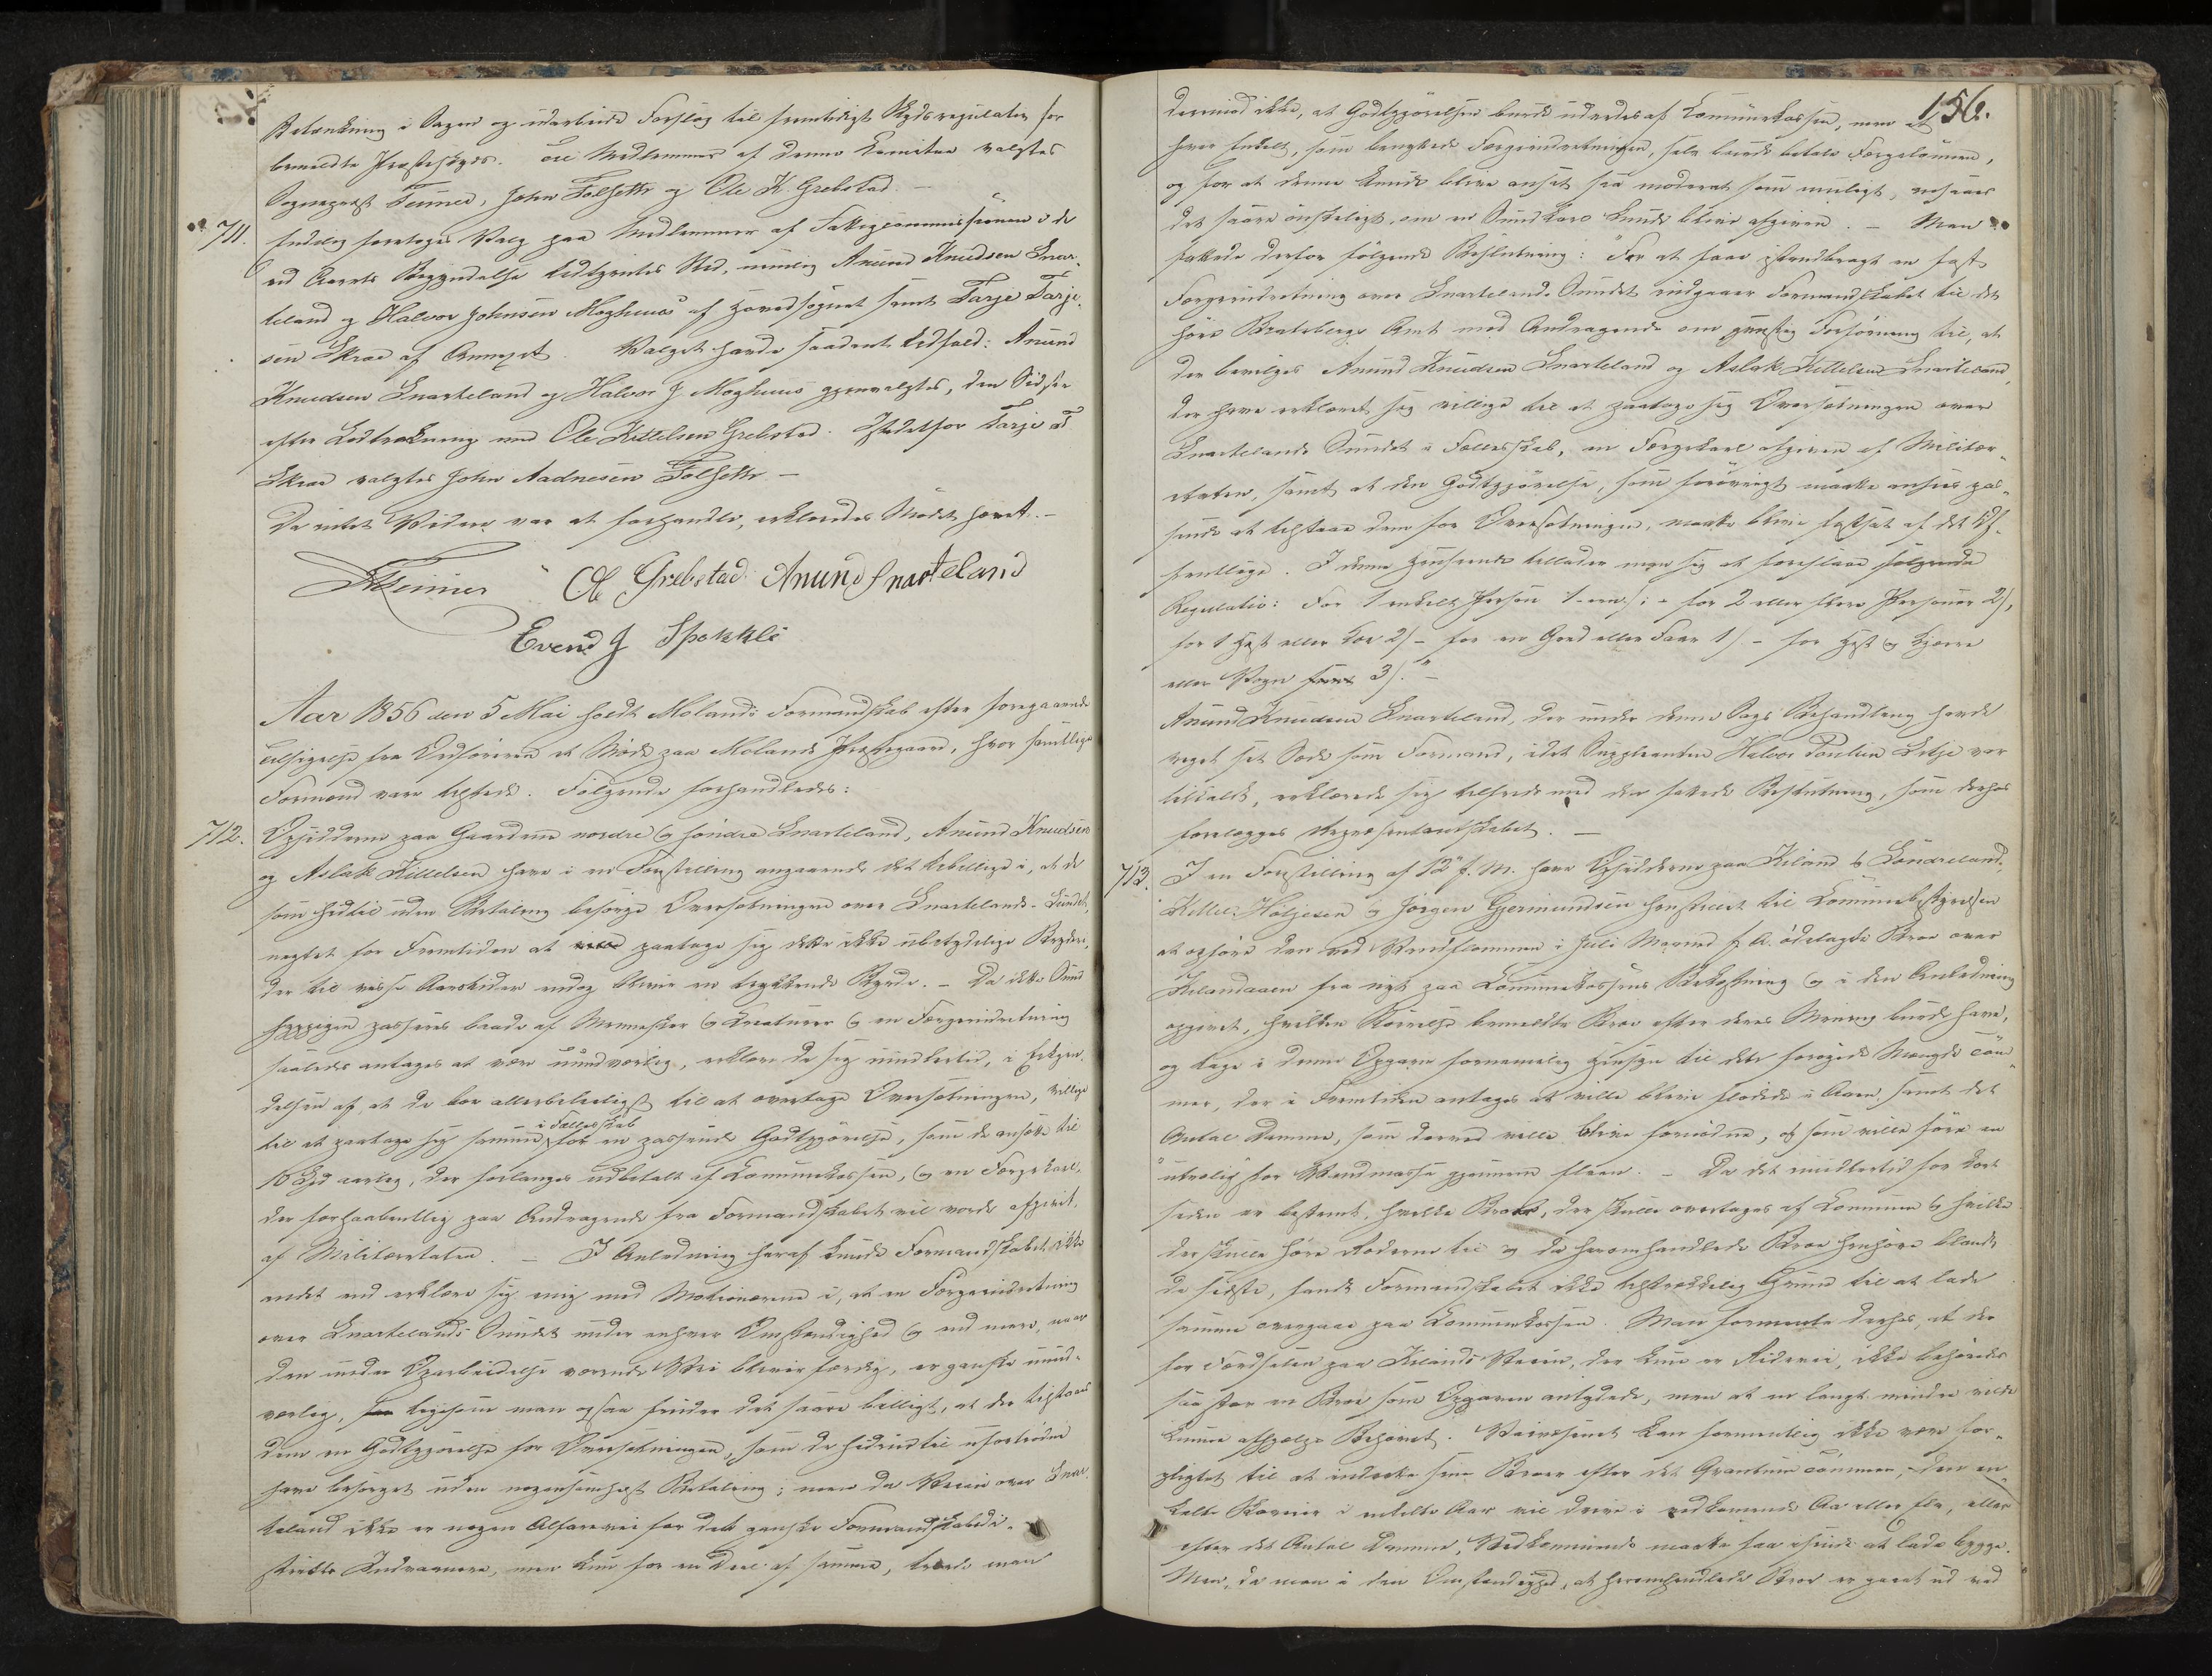 Betænkning i Sagen og udarbeide Forslag til fremtidigt Skydsregulativ for
bemeldte Præsteskyds. Til Medlemmer af denne Komitee valgtes
Sognepræst Feiner, John Folseth og Ole K. Grebstad. —
711. Endelig foretoges Valg paa Medlemmer af Fattigcommissionen i de
ved Aarets Begyndelse udtraadtes Sted, nemlig Anund Knudsen Snar-
teland og Halvor Johnsen Moghuus af Hovedsognet samt Tarje Tarje-
sen Skree af Annexet. Valget havde saadant Udfald: Anund
Knudsen Snarteland og Halvor J Moghuus gjenvalgtes, den Sidste
efter Lodtrækning med Ole Kittelsen Grebstad. Istedetfor Tarje T
Skree valgtes John Aadnesen Folseth —
Da intet Videre var at forhandle, erklæredes Mødet hævet. —
Feiner Ole Grebstad Anund Snarteland
Evend J Spokkli
Aar 1856 den 5 Mai holdt Molands Formandskab efter foregaaende
Tilsigelse fra Ordføreren et Møde paa Molands Præstegaard, hvor samtlige
Formænd vare tilstede. Følgende forhandledes:
712. Opsidderne paa Gaardene nordre og søndre Snarteland, Anund Knudsen
og Aslak Kittelsen have i en Forestilling angaaende det Ubillige i, at de
som hidtil uden Betaling besørge Oversætningen over Snartelands-Sundet,
negtet for Fremtiden at paatage sig dette ikke ubetydelige Bryderi,
der til visse Aarstider endog bliver en trykkende Byrde. — Da dette Sund
hyppigen passeres baade af Mennesker og Kreaturer og en Færgeindretning
saaledes antages at være nundværlig, erklære de sig imidlertid, i Erkjen-
delsen af at de bor allerbeleiligst til at overtage Oversætningen, villige
til at paatage sig samme i Fællesskab for en passende Godtgjørelse, som de ansætte til
16 Spd aarlig, der forlanges udbetalt af Kommunekassen, og en Færgekarl,
der forhaabentlig paa Andragende fra Formandskabet vil vorde afgivet
af Militæretaten. — I Anledning heraf kunde Formandskabet ikke
andet end erklære sig enig med Motionærerne i, at en Færgeindretning
over Snartelands Sundet under enhver Omstændighed og end mere, naar
den under Oparbeidelse værende Vei bliver færdig, er ganske nund-
værlig, ligesom man ogsaa finder det saare billigt, at der tilstaaes
dem en Godtgjørelse for Oversætningen, som de hidindtil ufortrødne
have besørget uden nogensomhelst Betaling; men da Veien over Snar-
teland ikke er nogen Alfarvei for det ganske Formandskabsdi-
stricts Indvaanere, men kun for en Deel af samme, troede man
156.
derimod ikke, at Godtgjørelsen burde udredes af Kommunekassen, men at
hver Enkelt, som benyttede Færgeindretningen, selv burde betale Færgelønnen,
og for at denne kunde blive ansat saa moderat som muligt, ansaaes
det saare ønskeligt, om en Sundkarl kunde blive afgiven. — Man
fattede derfor følgende Beslutning: "For at faae istandbragt en fast
Færgeindretning over Snartelands-Sundet indgaaer Formandskabet til det
høie Bratsbergs Amt med Andragende om gunstig Forføining til, at
der bevilges Anund Knudsen Snarteland og Aslak Kittelsen Snarteland,
der have erklæret sig villige til at paatage sig Oversætningen over
Snartelands Sundet i Fællesskab, en Færgekarl afgiven af Militær-
etaten, samt at den Godtgjørelse, som forøvrigt maatte ansees pas-
sende at tilstaae dem for Oversætningen, maatte blive fastsat af det Of-
fentlige. I denne Henseende tillader man sig at foreslaae følgende
Regulativ: For 1 enkelt Person 1 - een ß; - for 2 eller flere Personer 2 ß,
for 1 Hest eller Koe 2 ß - for en Geed eller Faar 1 ß. - for Hest og Kjærre
eller Vogn 3 ß." —
Anund Knudsen Snarteland, der under denne Sags Behandling havde
veget sit Sæde som Formand, idet Suppleanten Halvor Poulsen Litje var
tilkaldt, erklærede sig tilfreds med den fattede Beslutning, som derhos
forelægges Repræsentantskabet. —
713. I en Forestilling af 12te f. M. have Opsidderne paa Kiland og Søndreland,
Kittel Høljesen og Jørgen Gjermundsen henstillet til Kommunebestyrelsen
at opføre den ved Vandflommen i Juli Maaned f. A. ødelagte Broe over
Kilandaaen fra nyt paa Kommunekassens Bekostning og i den Anledning
opgivet, hvilken Størrelse bemeldte Broe efter deres Mening burde have,
og tage i denne Opgave fornemmelig Hensyn til det forøgede Mængde Tøm-
mer, der i Fremtiden antages at ville blive flødet i Aaen, samt det
Antal Damme, som derved ville blive fornødne, og som ville føre en
"utrolig" stor Vandmasse gjennem Elven. — Da det imidlertid for kort
siden er bestemt, hvilke Broer, der skulle overtages af Kommunen og hvilke
der skulle høre Roderne til og da heromhandlede Broe henhøre blandt
de sidste, fandt Formandskabet ikke tilstrækkelig Grund til at lade
samme overgaae paa Kommunekassen. Man formeente derhos, at der
for Færdselen paa Kilands Veien, der kun er Ridevei, ikke behøvedes
saa stor en Broe som Opgaven antydede, men at en langt mindre vilde
kunne afhjælpe Behovet. Veivæsenet kan formentlig ikke være for-
pligtet til at indrette sine Broer efter det Qvantum Tømmer, den en-
kelte Skoveier i enkelte Aar vil drive i vedkommende Aa eller Elv, eller
efter det Antal Damme, Vedkommende maatte faae isinde at lade bygge.
Men, da man i den Omstændighed, at heromhandlede Broe er gaaet ud ved